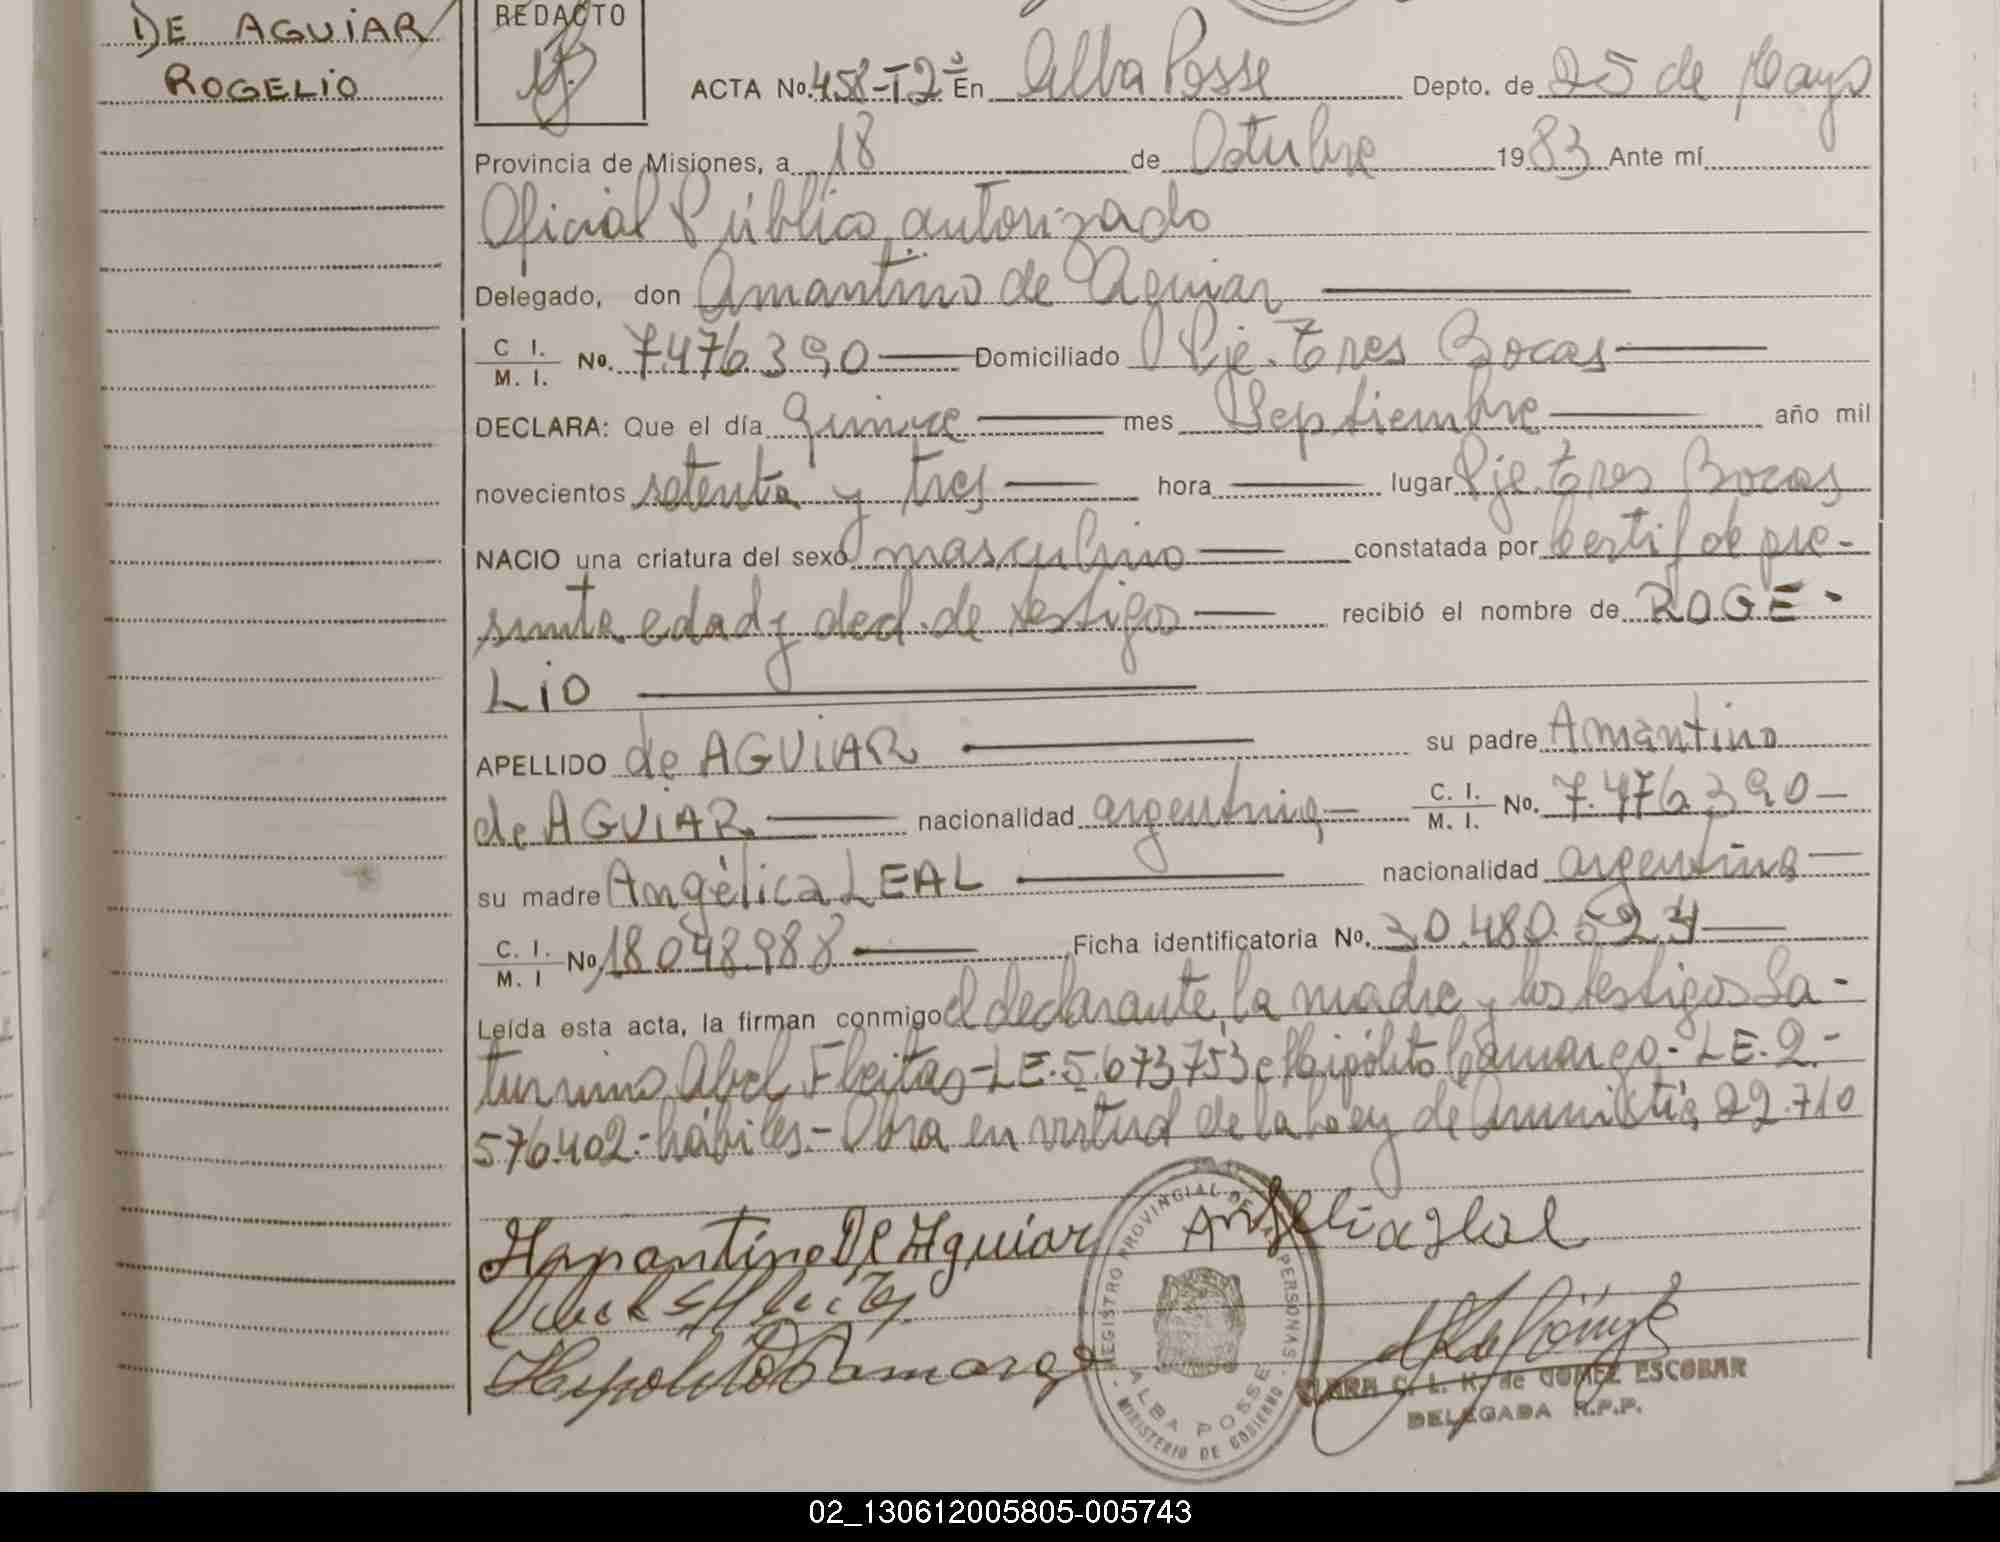 DE AGUIAR
ROGELIO
REDACTO
ACTA No. 458-T2º En Alba Posse Depto. de 25 de Mayo
Provincia de Misiones, a 18 de Octubre 1983 Ante mí
Oficial Público autorizado
Delegado, don Amantino de Aguiar
C I. / M. I. No. 7.476.390 Domiciliado Pje. Tres Bocas
DECLARA: Que el día quince mes Septiembre año mil
novecientos setenta y tres hora lugar Pje. Tres Bocas
NACIO una criatura del sexo masculino constatada por Certif de pre-
sunta edad y decl. de testigos recibió el nombre de ROGE-
LIO
APELLIDO de AGUIAR su padre Amantino
de AGUIAR nacionalidad argentina C. I. / M. I. No. 7.476.390
su madre Angélica LEAL nacionalidad argentina
C. I. / M. I No. 18.048.988 Ficha identificatoria No. 30.480.524
Leída esta acta, la firman conmigo el declarante, la madre y los testigos Sa-
turnino Abel Fleitas-LE.5.673.753 e Hipólito Camargo.-LE.2.-
576.402.-hábiles.-Obra en virtud de la Ley de Amnistía 22.710
Hamantino De Aguiar Angelica Leal
Hipolito Camargo
REGISTRO PROVINCIAL DE LAS PERSONAS
ALBA POSSE
MINISTERIO DE GOBIERNO
C. L. K. de GOMEZ ESCOBAR
DELEGADA R.P.P.
02_130612005805-005743